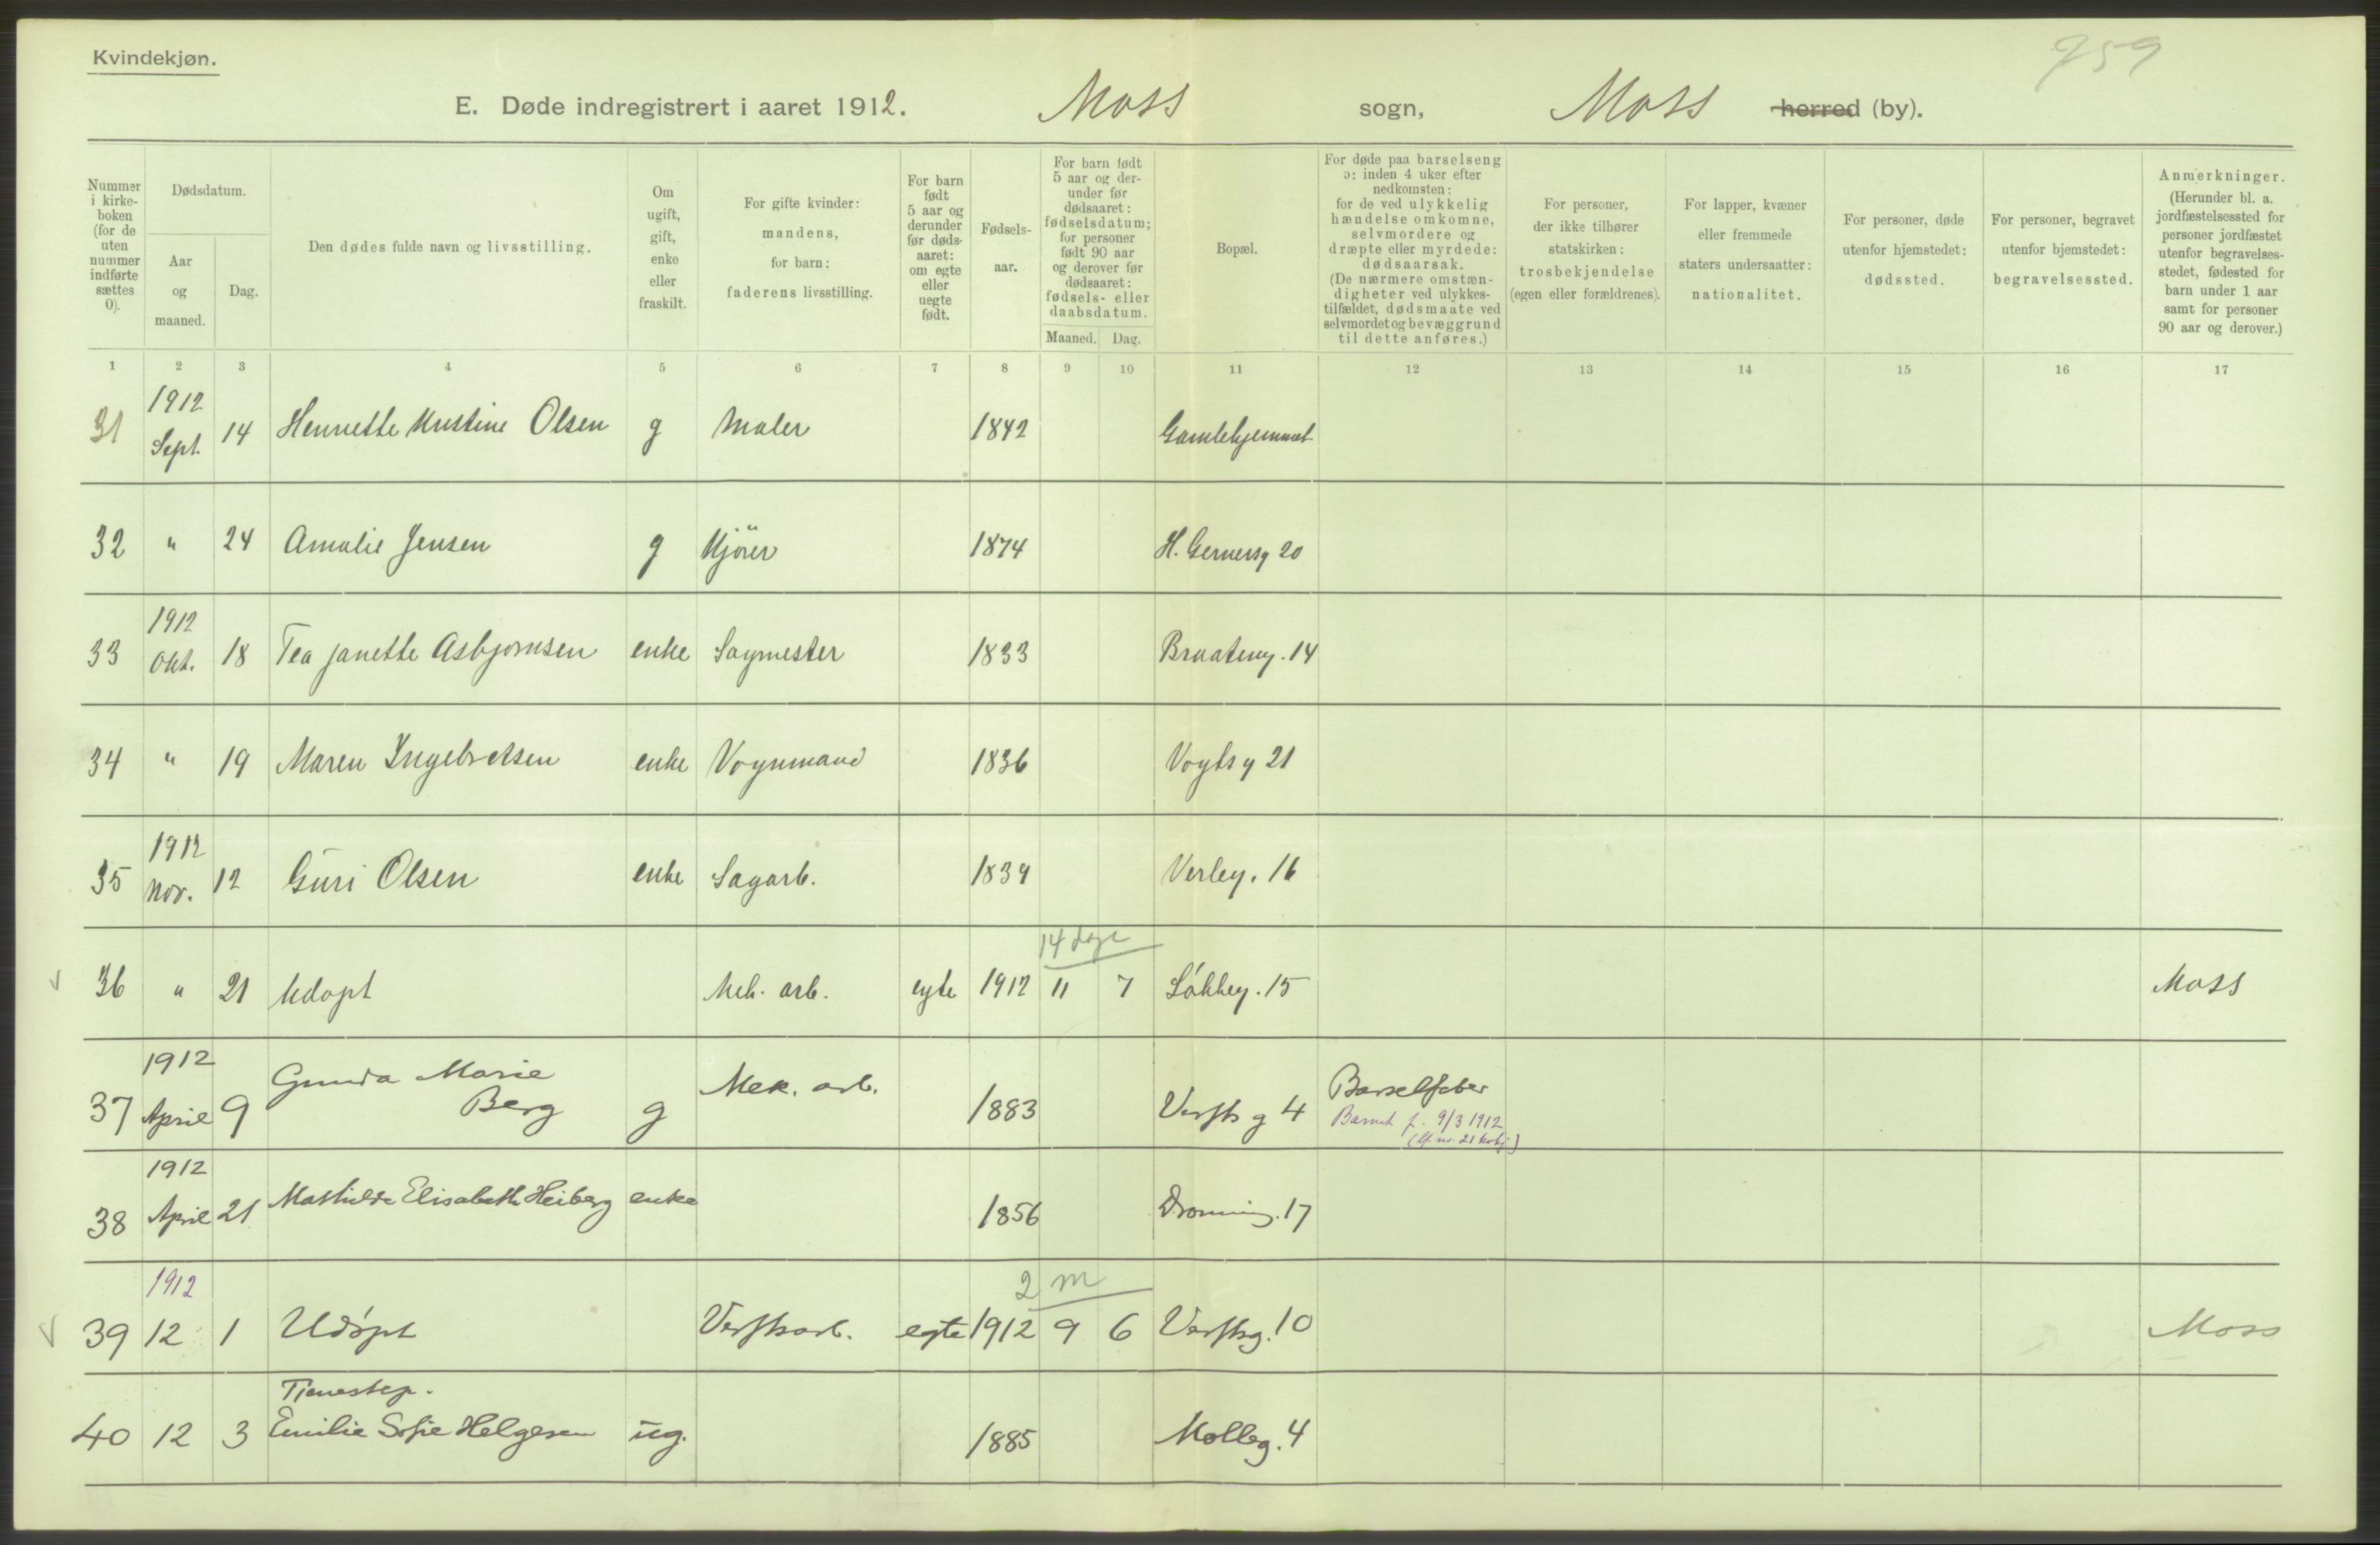 Kvindekjøn.
959
E. Døde indregistrert i aaret 1912. Moss sogn, Moss herred (by).
Nummer i kirkeboken (for de uten nummer indførte sættes 0).
Dødsdatum.
Aar og maaned.
Dag.
Den dødes fulde navn og livsstilling.
Om ugift, gift, enke eller fraskilt.
For gifte kvinder: mandens, for barn: faderens livsstilling.
For barn født 5 aar og derunder før dødsaaret: om egte eller uegte født.
Fødselsaar.
For barn født 5 aar og derunder før dødsaaret: fødselsdatum; for personer født 90 aar og derover før dødsaaret: fødsels- eller daabsdatum.
Maaned. Dag.
Bopæl.
For døde paa barselseng ɔ: inden 4 uker efter nedkomsten: for de ved ulykkelig hændelse omkomne, selvmordere og dræpte eller myrdede: dødsaarsak. (De nærmere omstændigheter ved ulykkestilfældet, dødsmaate ved selvmordet og bevæggrund til dette anføres.)
For personer, der ikke tilhører statskirken: trosbekjendelse (egen eller forældrenes).
For lapper, kvæner eller fremmede staters undersaatter: nationalitet.
For personer, døde utenfor hjemstedet: dødssted.
For personer, begravet utenfor hjemstedet: begravelsessted.
Anmerkninger. (Herunder bl. a. jordfæstelsessted for personer jordfæstet utenfor begravelsesstedet, fødested for barn under 1 aar samt for personer 90 aar og derover.)
1 2 3 4 5 6 7 8 9 10 11 12 13 14 15 16 17
1912
31 Sept. 14 Henriette Kristine Olsen g Maler 1842 Gamlehjemmet
32 " 24 Amalie Jensen g Kjörer 1874 H. Gernersg 20
1912
33 Okt. 18 Tea Janette Asbjornsen enke Sagmester 1833 Braateng. 14
34 " 19 Maren Ingebretsen enke Vognmand 1836 Vogtsg 21
1912
35 Nov. 12 Guri Olsen enke Sagarb. 1834 Verleg. 16
14 dage
36 " 21 Udøpt Mek. arb. egte 1912 11 7 Løkkeg. 15 Moss
1912
37 April 9 Gunda Marie Berg g Mek. arb. 1883 Verftsg 4 Barselfeber
Barnet f. 9/3 1912
1912
38 April 21 Mathilde Elisabeth Heiberg enke 1856 Dronning. 17
1912
2 m
39 12 1 Udøpt Verftsarb. egte 1912 9 6 Verftsg. 10 Moss
Tjenestep.
40 12 3 Emilie Sofie Helgesen ug. 1885 Molleg. 4